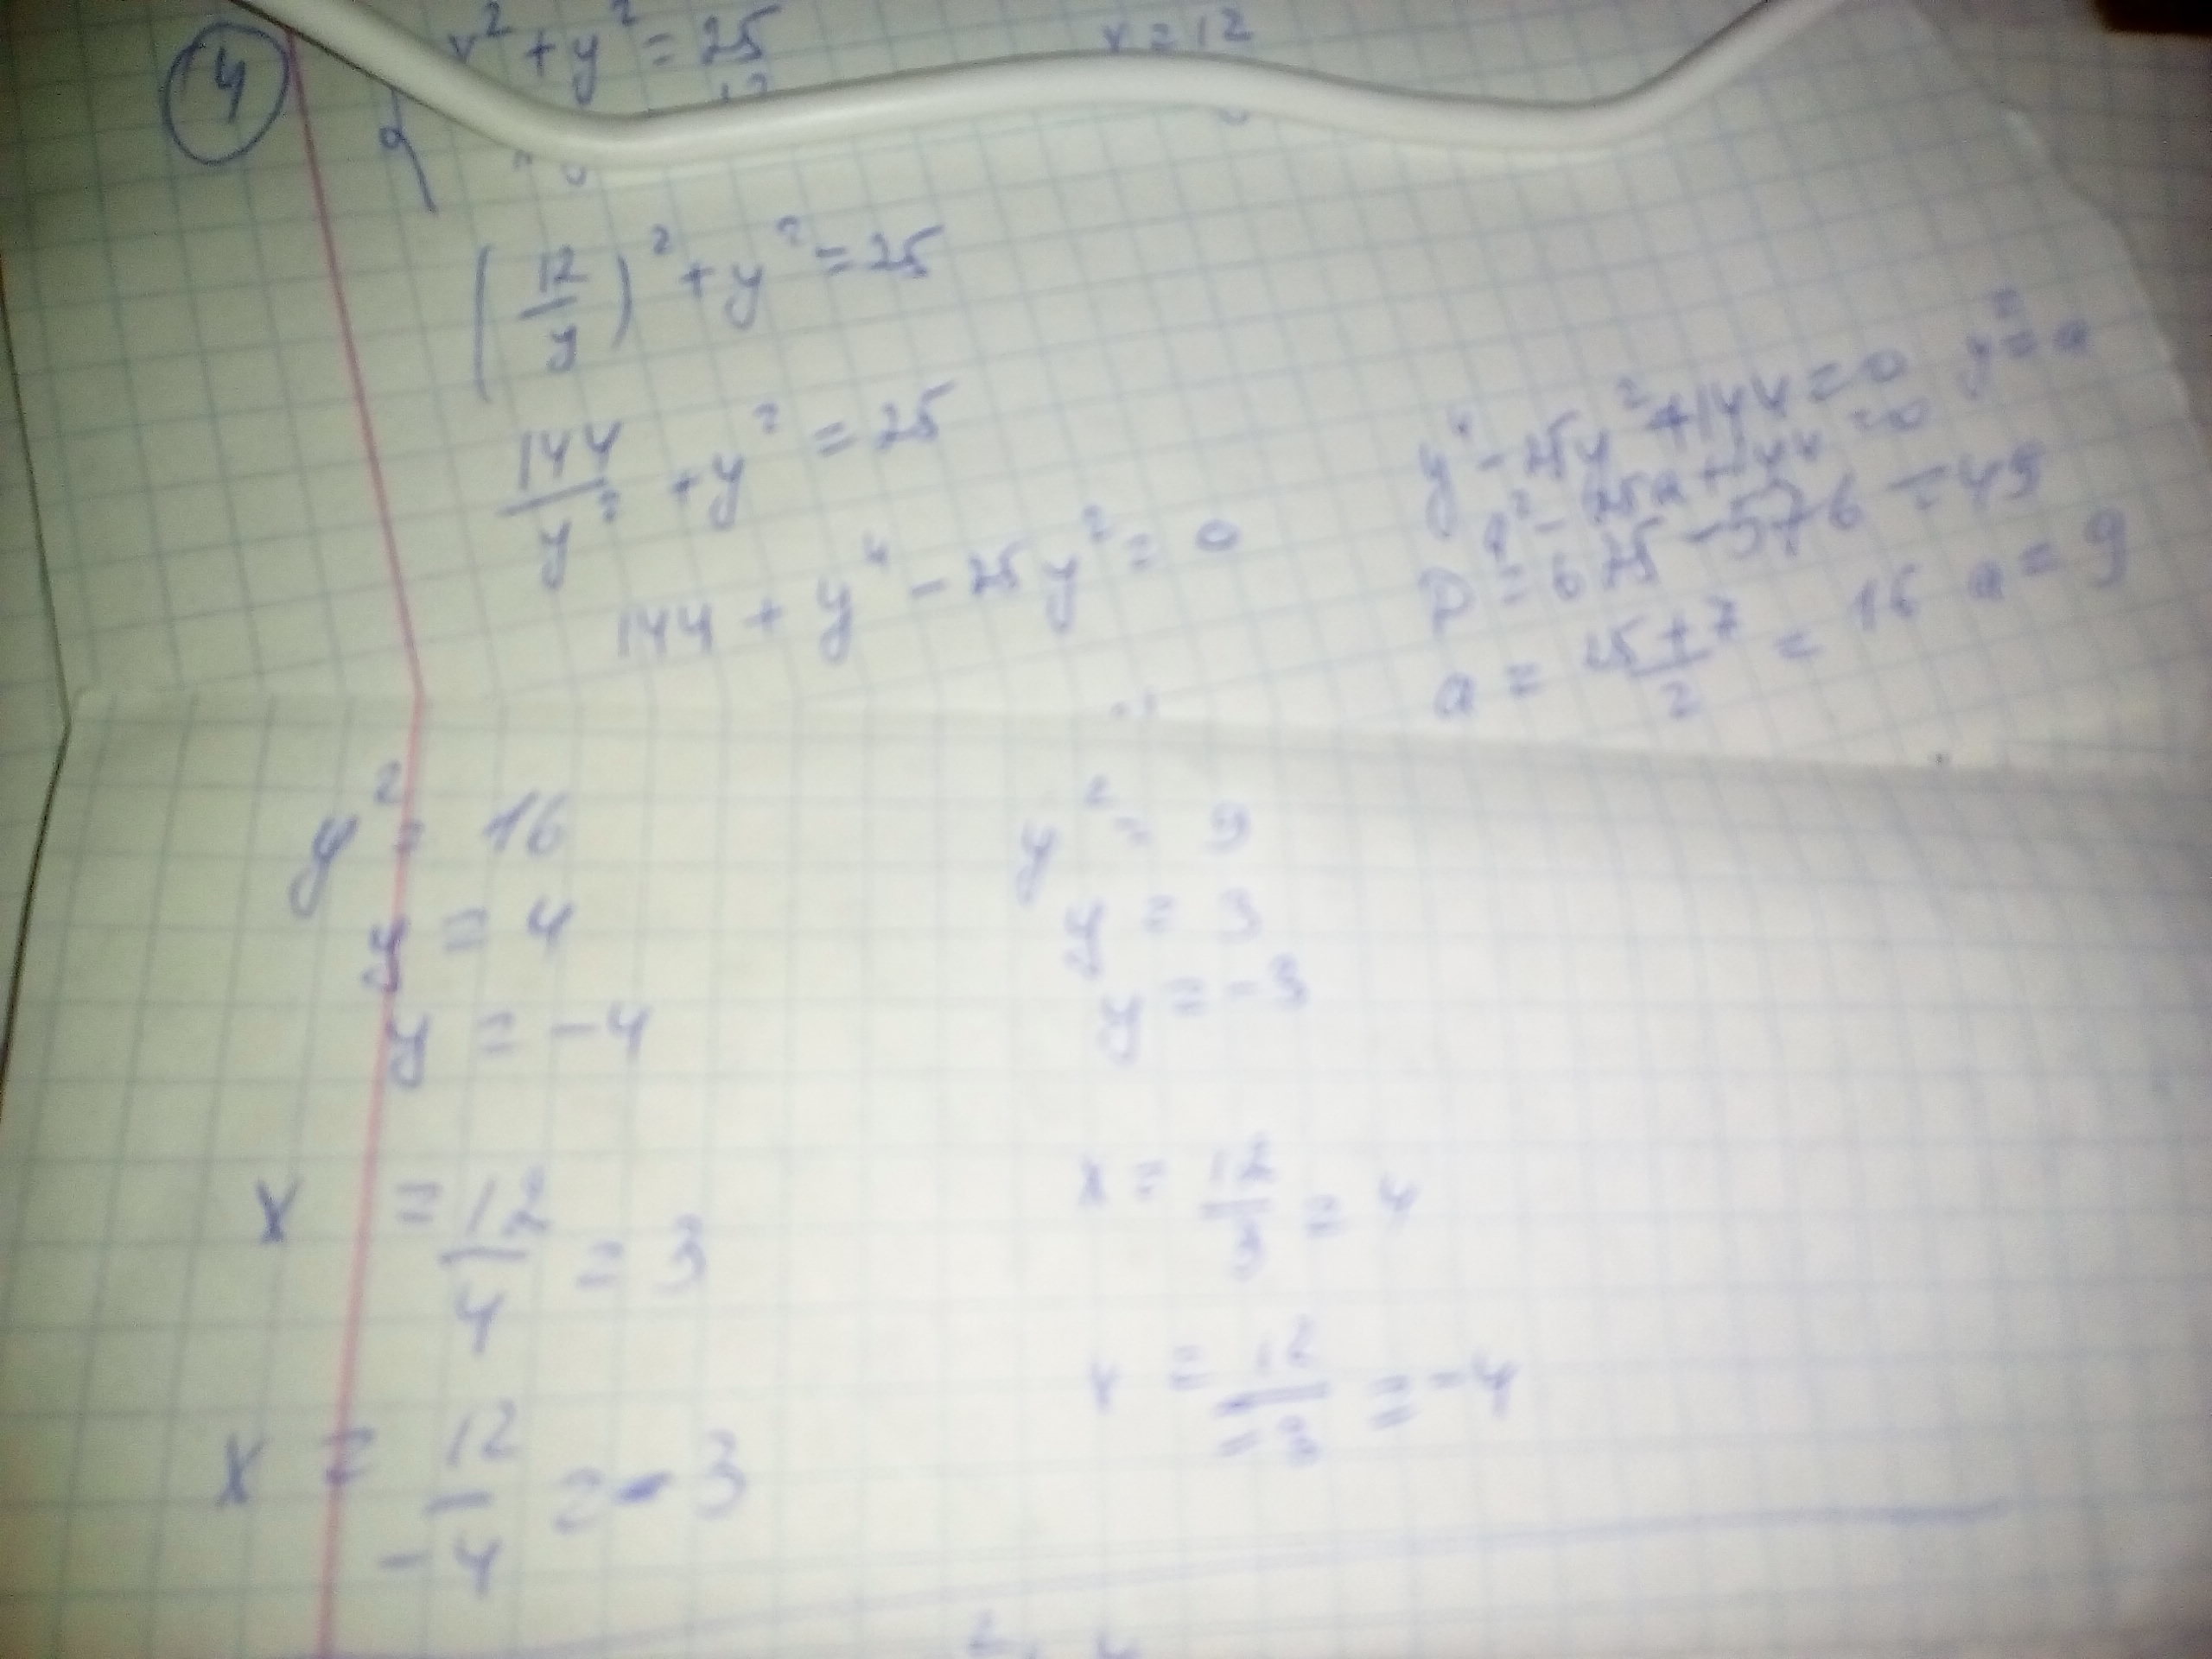 ④ x² + y² = 25
x = 12
(12/y)² + y² = 25
144/y² + y² = 25
144 + y⁴ - 25y² = 0
y⁴ - 25y² + 144 = 0 y² = a
a² - 25a + 144 = 0
D = 625 - 576 = 49
a = (25 + 7)/2 = 16 a = 9
y² = 16
y = 4
y = -4
x = 12/4 = 3
x = 12/-4 = -3
y² = 9
y = 3
y = -3
x = 12/3 = 4
x = 12/-3 = -4